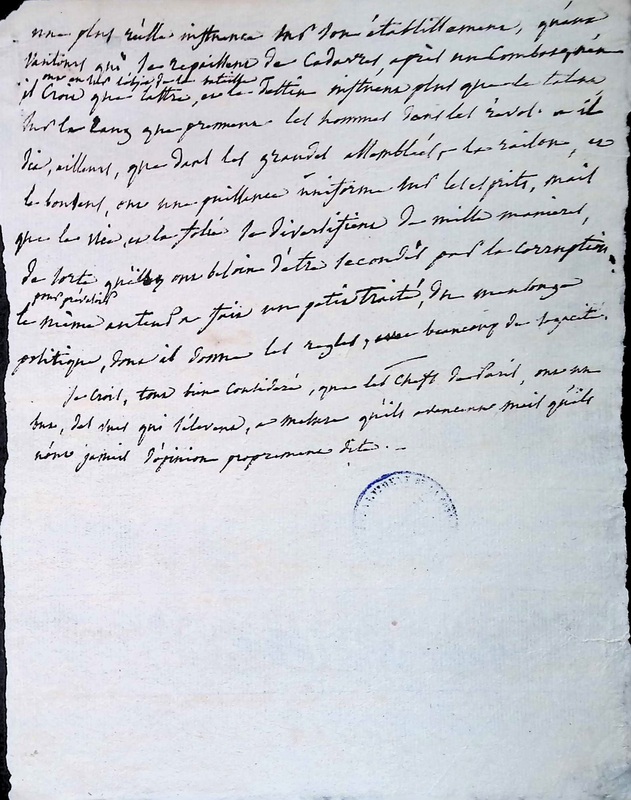 une plus réelle influence sur son établissement, qu'aux
vautours qui se repaissent de Cadavres après un Combat
ont en ses
il Croit que l'astre, ou le Destin influent plus que le talent
sur le Rang que prennent les hommes dans les révol. il
dit, ailleurs, que dans les grandes assemblées, la raison, et
le bon sens, ont une puissance uniforme sur les esprits, mais
que le vice, et la folie se diversifient de mille manières,
de sorte qu'ils ont besoin d'être secondés par la corruption
pour prévaloir
le même auteur a fait un petit traité, du mensonge
politique, dont il donne les regles, avec beaucoup de sagacité.
Je Crois, tout bien Considéré, que les Chefs de Parti, ont un
but, des vues qui s'élèvent, a mesure qu'ils avancent mais qu'ils
n'ont jamais d'opinion proprement dite. —